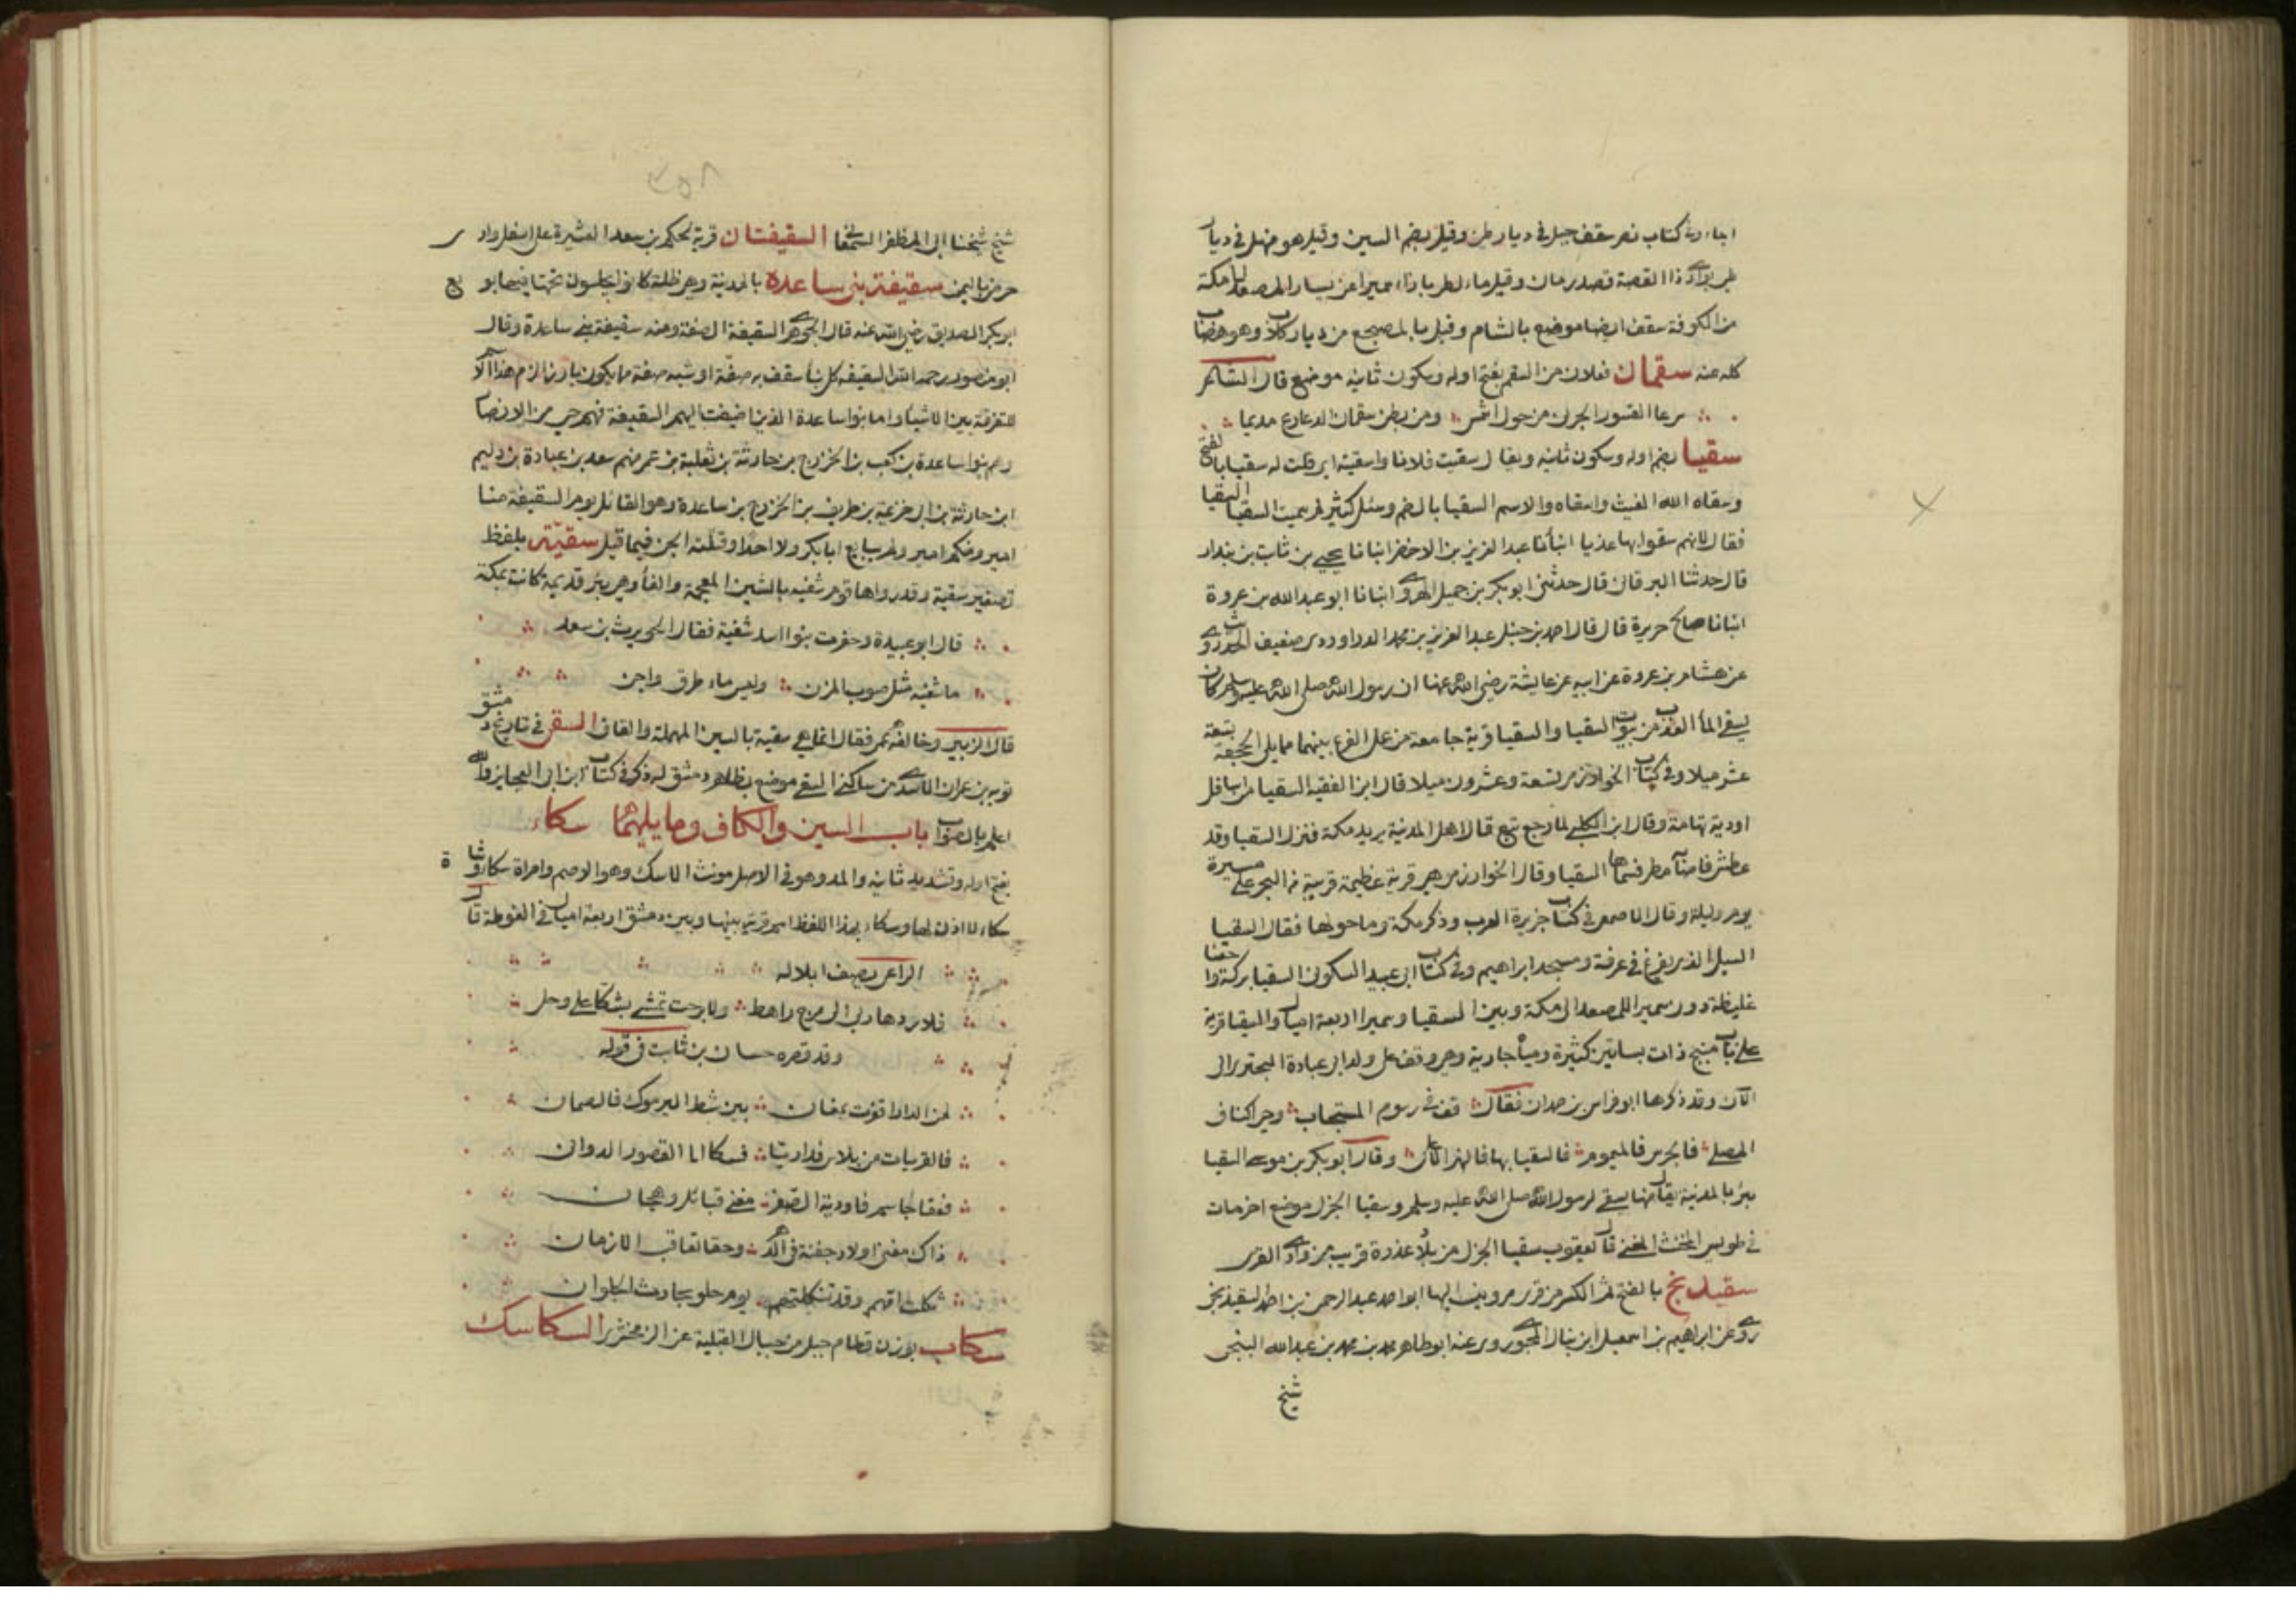 كتاب نصر سقف جبل في ديار طي وقيل بضم السين وقيل هو منهل في ديار
طي بوادي ذا القصة قصد رمان وقيل ماء لطي بازاء سميرا عن يسار المصعد الى مكة
من الكوفة سقف ايضا موضع بالشام وقيل بالمضجع من ديار كلاب وهو هضاب
كله عنه سقمان فعلان من السقم بفتح اوله وسكون ثانيه موضع قال الشاعر
رعا القسور الجون من حول اشمس ومن بطن سقمان الدعادع مديما
سقيا بضم اوله وسكون ثانيه ويقال سقيت فلانا واسقيته اي قلت له سقيا بالفتح
وسقاه الله الغيث واسقاه والاسم السقيا بالضم وسئل كثير لم سميت السقيا السقيا
فقال لانهم سقوا بها عذبا انبأنا عبد العزيز بن الاخضر انبانا يحيى بن ثابت بن بندار
قال حدثنا البرقاني قال حدثني ابو بكر بن جميل الهروي انبانا ابو عبد الله بن عروة
انبانا صالح حريرة قال قال احمد بن حنبل عبد العزيز بن محمد الدراوردي ضعيف الحديث روى
عن هشام بن عروة عن ابيه عن عايشة رضي الله عنها ان رسول الله صلى الله عليه وسلم كان
يسقى الماء العذب من بيوت السقيا والسقيا قرية جامعة من عمل الفرع بينهما مما يلي الجحفة تسعة
عشر ميلا وفي كتاب الخوارزمي تسعة وعشرون ميلا قال ابن الفقيه السقيا من اسافل
اودية تهامة وقال ابن الكلبي لما رجع تبع قال لاهل المدينة يريد مكة فنزل السقيا وقد
عطش فاصابه مطر فسماها السقيا وقال الخوارزمي هي قرية عظيمة قريبة من البحر على مسيرة
يوم وليلة وقال الاصمعي في كتاب جزيرة العرب وذكر مكة وما حولها فقال السقيا
السيل الذي يفرغ في عرفة ومسجد ابراهيم وفي كتاب ابي عبيد السكوني السقيا بركة واحسا
غليظة دون سميرا للمصعد الى مكة وبين السقيا وسميرا اربعة اميال والسقيا قرية
على باب منبج ذات بساتين كثيرة ومياه جارية وهي وقف على ولد ابي عبادة البحتري الى
الآن وقد ذكرها ابو فراس بن حمدان فقال قف في رسوم المستجاب وحي اكناف
المصلى فالجوس فالميمون فالسقيا بها فالنهر الاعلى وقال ابو بكر بن موسى السقيا
بئر بالمدينة يقال منها يسقى لرسول الله صلى الله عليه وسلم وسقيا الجزل موضع اخر مات
في طويس المخنث المغني قال يعقوب سقيا الجزل من بلاد عذرة قريب من وادي القرى
سقيدنج بالفتح ثم الكسر من قرى مرو ينسب اليها ابو احمد عبد الرحمن بن احمد السقيدنجي
روى عن ابراهيم بن اسمعيل بن ينال المحبوبي روى عنه ابو طاهر محمد بن محمد بن عبد الله السنجي
شيخ
٣٥٨
شيخ شيخنا ابي المظفر السمعاني السقيفتان قرية لحكم بن سعد العشيرة على اسفل وادي
حرض باليمن سقيفة بني ساعدة بالمدينة وهي ظلة كانوا يجلسون تحتها فيها بويع
ابو بكر الصديق رضي الله عنه قال الجوهري السقيفة الصفة ومنه سقيفة بني ساعدة وقال
ابو منصور رحمه الله السقيفة كل بناء سقف به صفة او شبه صفة مما يكون بارزا الزم هذا الاسم
للتفرقة بين الاشياء واما بنوا ساعدة الذين اضيفت اليهم السقيفة فهم حي من الانصار
وهم بنو ساعدة بن كعب بن الخزرج بن حارثة بن ثعلبة بن عمر منهم سعد بن عبادة بن دليم
ابن حارثة بن ابي خزيمة بن طريف بن الخزرج بن ساعدة وهو القائل يوم السقيفة منا
امير ومنكم امير ولم يبايع ابا بكر ولا احدا وقتلته الجن فيما قيل سقية بلفظ
تصغير سقية وقد رواها قوم شفية بالشين المعجمة والفاء وهي بئر قديمة كانت بمكة
قال ابو عبيدة وحفرت بنوا اسد شفية فقال الحويرث بن سعد
ما شفية مثل صوب المزن وليس ماء طرق واجن
قال الزبير وخالفه عمر فقال انما هي سقية بالسين المهملة والقاف السقي في تاريخ دمشق
توبه بن عمران الاسدي من ساكني السقي موضع بظاهر دمشق له ذكر في كتاب ابن ابي العجايز والله
اعلم بالصواب باب السين والكاف وما يليهما سكاء
بفتح اوله وتشديد ثانيه والمد وهو في الاصل مونث الاسك وهو الاصم وامراة سكاء وشاة
سكاء لا اذن لها وسكاء بهذا اللفظ اسم قرية بينها وبين دمشق اربعة اميال في الغوطة قال
الراعي يصف ابلا له
فلا ردها ربي الى مرج راهط ولا برحت تمشي بسكاء على وحل
وقد قصره حسان بن ثابت في قوله
لمن الدار اقوت بمغان بين شط اليرموك فالصمان
فالقريات من بلاس فداريا فسكاء فالقصور الدواني
فقفا جاسم فاودية الصفر مغنى قبائل وهجان
ذاك مغنى اولاد جفنة في الدهر وحقا تعاقب الازمان
ثكلت امهم وقد ثكلتهم يوم حلوا بحارث الجولان
سكاب بوزن قطام جبل من جبال القبلية عن الزمخشري السكاسك